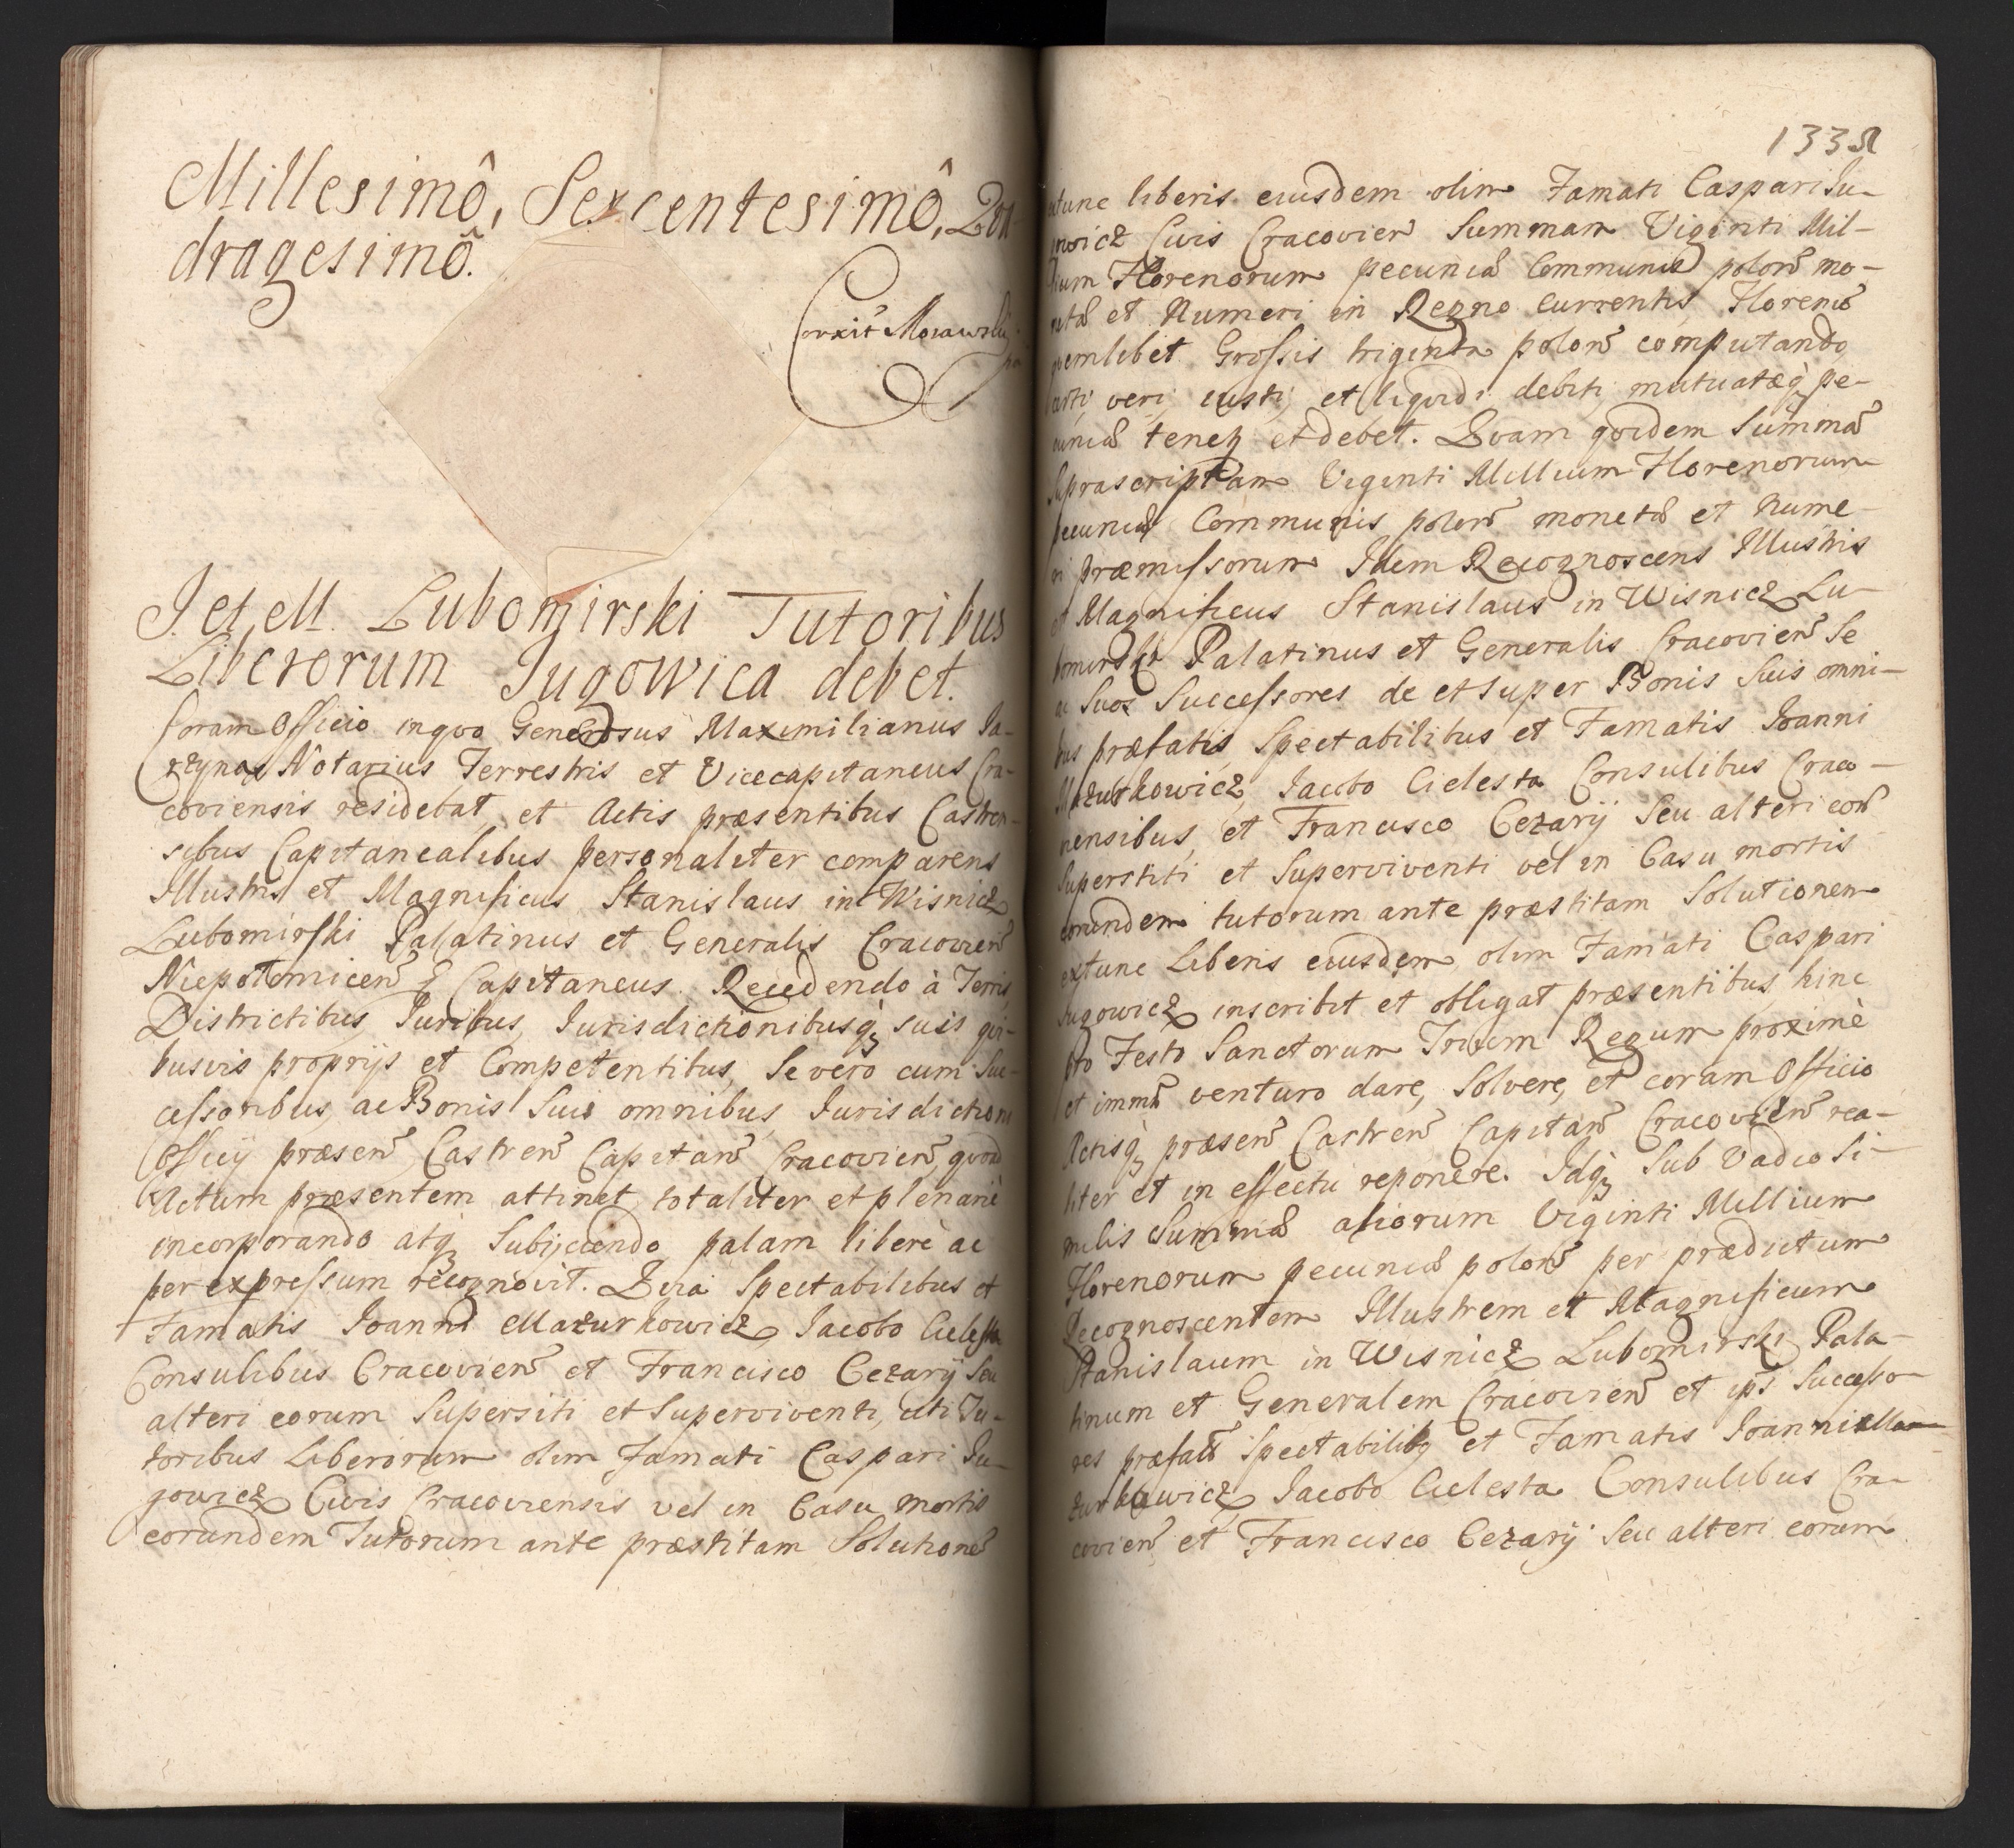 Millesimô, Sexcentesimô, Qua
dragesimô.
Corrxit Morawski
I. et M. Lubomirski Tutoribus
Liberorum Jugowica debet.
Coram Officio inquo Generosus Maximilianus Ja-
rzyna Notarius Terrestris et Vicecapitaneus Cra-
coviensis residebat, et Actis præsentibus Castren-
sibus Capitanealibus personaliter comparens
Illustris et Magnificus Stanislaus in Wisnicz
Lubomirski Palatinus et Generalis Cracovien̄
Niepolomicen̄ & Capitaneus. Recedendo à Terris
Districtibus, Juribus, Jurisdictionibusq; suis qui-
busvis proprijs et Competentibus, Se vero cum Suc-
cessoribus, ac Bonis Suis omnibus, Jurisdictioni
Officij præsen̄ Castren̄ Capitan̄ Cracovien̄, quoad
Actum præsentem attinet, totaliter et plenariè
incorporando atq; Subijciendo, palam liberè ac
per expressum recognovit. Quia Spectabilibus et
Famatis Joanni Mazurkowicz, Jacobo Cielesta
Consulibus Cracovien̄ et Francisco Cezarij Seu
alteri eorum Supersiti et Superviventi, uti Tu-
toribus Liberorum olim Famati Caspari Ju-
gowicz Civis Cracoviensis vel in Casu mortis
eorundem Tutorum ante præstitam Solutionē
133
extunc liberis eiusdem olim Famati Caspari Ju-
gowicz Civis Cracovien̄ Summam Viginti Mil-
lium Florenorum pecuniæ Communis polon̄ mo-
netæ et Numeri in Regno currentis, Florenū
quemlibet Grossis triginta polon̄ computando,
certi, veri, iusti, et liquidi debiti, mutuatæq; pe-
cuniæ tenet; et debet. Quam quidem Summā
Supra scriptam Viginti Millium Florenorum
pecuniæ Communis polon̄ monetæ et Nume-
ri præmissorum Idem Recognoscens Illustris
et Magnificus Stanislaus in Wisnicz Lu-
bomirski Palatinus et Generalis Cracovien̄ Se
ac Suos Successores de et super Bonis Suis omni-
bus præfatis Spectabilibus et Famatis Joanni
Mazurkowicz, Jacobo Cielesta Consulibus Craco-
viensibus, et Francisco Cezarij Seu alteri eorū
Superstiti et Superviventi vel in Casu mortis
eorundem tutorum ante præstitam Solutionem
extunc Liberis eiusdem olim Famati Caspari
Jugowicz inscribit et obligat præsentibus, hinc
pro Festo Sanctorum Trium Regum proximè
et immē venturo dare, Solvere, et coram Officio
Actisq; præsen̄ Castren̄ Capitan̄ Cracovien̄ rea-
liter et in effectu reponere. Idq; Sub Vadio Si-
milis Summæ aliorum Viginti Millium
Florenorum pecuniæ polon̄ per prædictum
Recognoscentem Illustrem et Magnificum
Stanislaum in Wisnicz Lubomirski Pala-
tinum et Generalem Cracovien̄ et ips̄ Successo-
res præfatis Spectabilibq; et Famatis Joanni Ma-
zurkowicz, Jacobo Cielesta Consulibus Cra-
covien̄ et Francisco Cezarij Seu alteri eorum